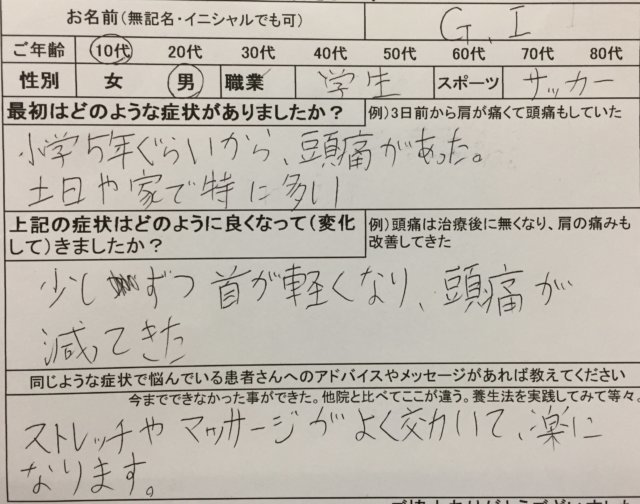 お名前(無記名・イニシャルでも可) G.I
ご年齢 10代 20代 30代 40代 50代 60代 70代 80代
性別 女 男 職業 学生 スポーツ サッカー
最初はどのような症状がありましたか? 例)3日前から肩が痛くて頭痛もしていた
小学5年ぐらいから、頭痛があった。
土日や家で特に多い
上記の症状はどのように良くなって(変化
して)きましたか?
例)頭痛は治療後に無くなり、肩の痛みも
改善してきた
少しずつ首が軽くなり、頭痛が
減ってきた
同じような症状で悩んでいる患者さんへのアドバイスやメッセージがあれば教えてください
今までできなかった事ができた。他院と比べてここが違う。養生法を実践してみて等々。
ストレッチやマッサージがよく効いて、楽に
なります。